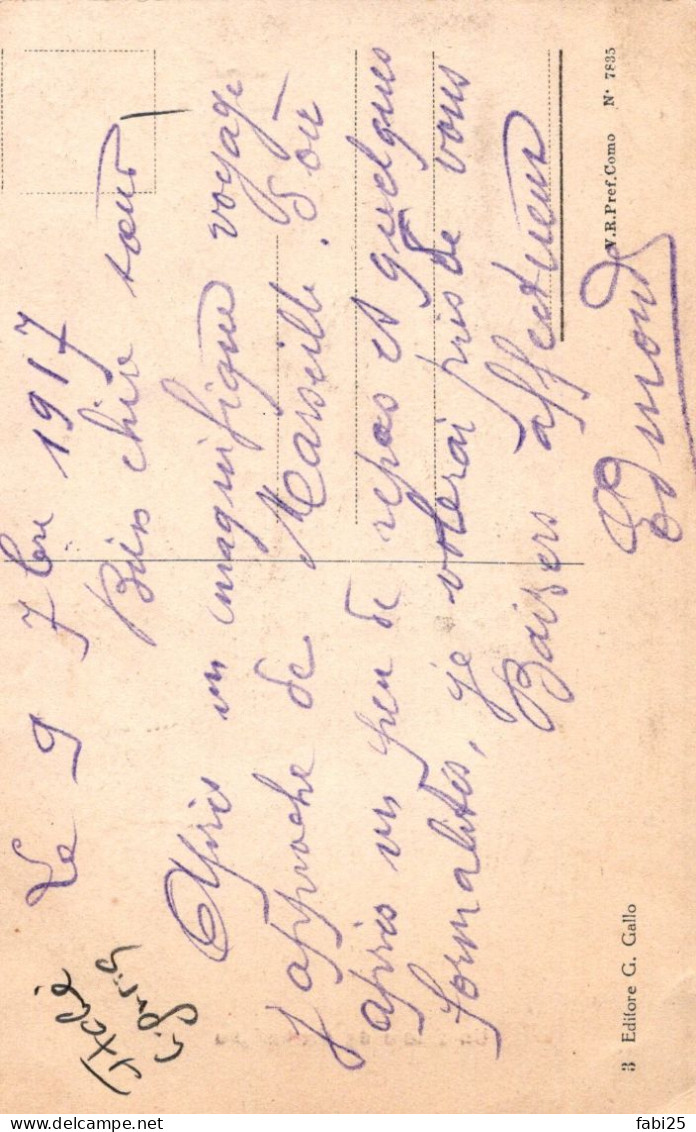 Le 9 7bre 1917
Bien chère sœur,
Après un magnifique voyage
j'approche de Marseille. d'où
après un peu de repos et quelques
formalités, je volerai près de vous
Baisers affectueux
Edmond
Italie
3 Editore G. Gallo
V.R.Pref.Como N· 7835
delcampe.net
fabi25